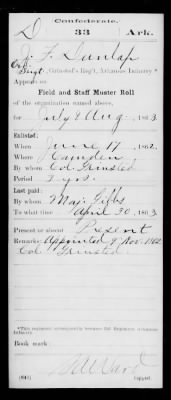 Confederate.
D 33 Ark.
J. F. Dunlap
Ord. Sergt, Grinsted's Reg't, Arkansas Infantry.*
Appears on
Field and Staff Muster Roll
of the organization named above,
for July & Aug, 1863
Enlisted:
When June 17, 1862.
Where Camden
By whom Col. Grinsted
Period 3 yrs.
Last paid:
By whom Maj. Gibbs
To what time April 30, 1863
Present or absent Present
Remarks: Appointed Nov. 1862
Col. Grinsted.
*This regiment subsequently became 33d Regiment Arkansas Infantry.
Book mark:
(641) Copyist.